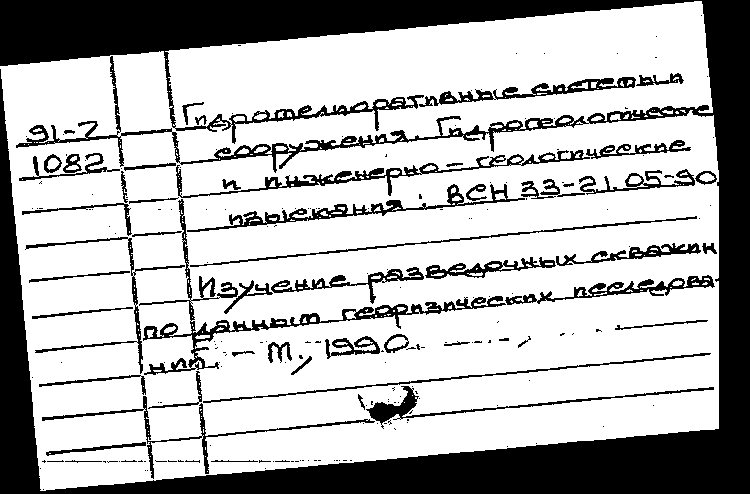 91-7
1082
Гидромелиоративные системы и
сооружения. Гидрогеологические
и инженерно-геологические
изыскания: ВСН 33-21.05-90
Изучение разведочных скважин
по данным геофизических исследова-
ний. - М., 1990.